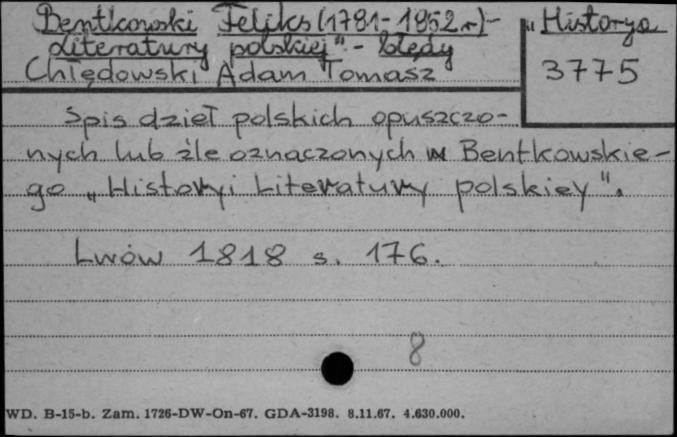 Bentkowski Feliks (1781-1852 r.) - "Historya
literatury polskiej" - błędy
Chłędowski Adam Tomasz
3775
Spis dzieł polskich opuszczo-
nych lub źle oznaczonych w Bentkowskie-
go "Historyi Literatury polskiey".
Lwów 1818 s. 176.
8
WD. B-15-b. Zam. 1726-DW-On-67. GDA-3198. 8.11.67. 4.630.000.